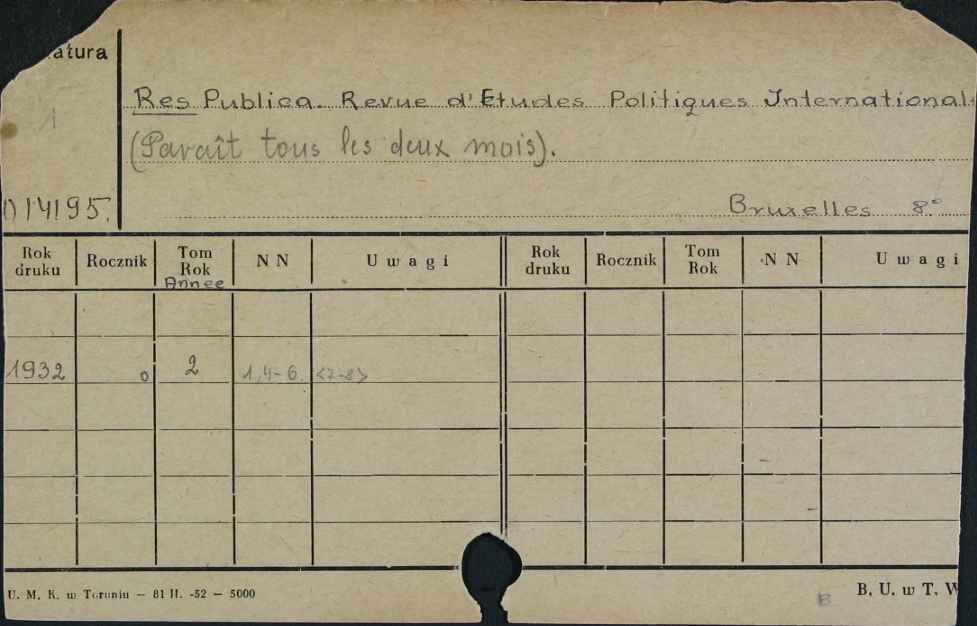 atura
1
Res Publica. Revue d'Etudes Politiques International
(Paraît tous les deux mois).
014195.
Bruxelles 8°
Rok druku Rocznik Tom Rok NN Uwagi Rok druku Rocznik Tom Rok NN Uwagi
Annee
1932 0 2 1,4-6. <7-8>
U. M. K. w Toruniu — 81 II. -52 — 5000
B. U. w T. W
B